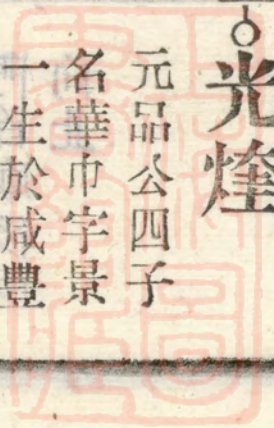 光煃
元品公四子
名華巾字景
一生於咸豐